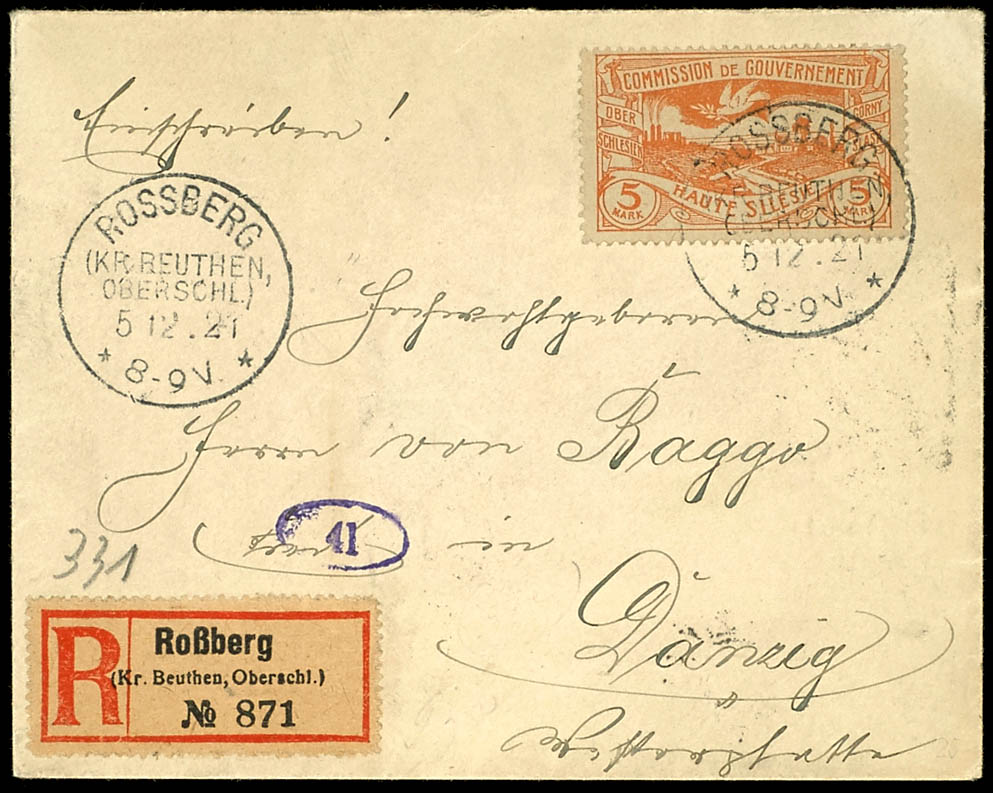 Einschreiben!
COMMISSION DE GOUVERNEMENT
OBER SCHLESIEN
GORNY
HAUTE SILÉSIE
5 MARK
5 MARK
ROSSBERG
(KR. BEUTHEN,
OBERSCHL.)
5 12.21
* 8-9V. *
ROSSBERG
(KR. BEUTHEN,
OBERSCHL.)
5 12.21
* 8-9V. *
Hochwohlgeboren
Herrn von Raggo
41
in
331
Danzig
Roßberg
R
(Kr. Beuthen, Oberschl.)
№ 871